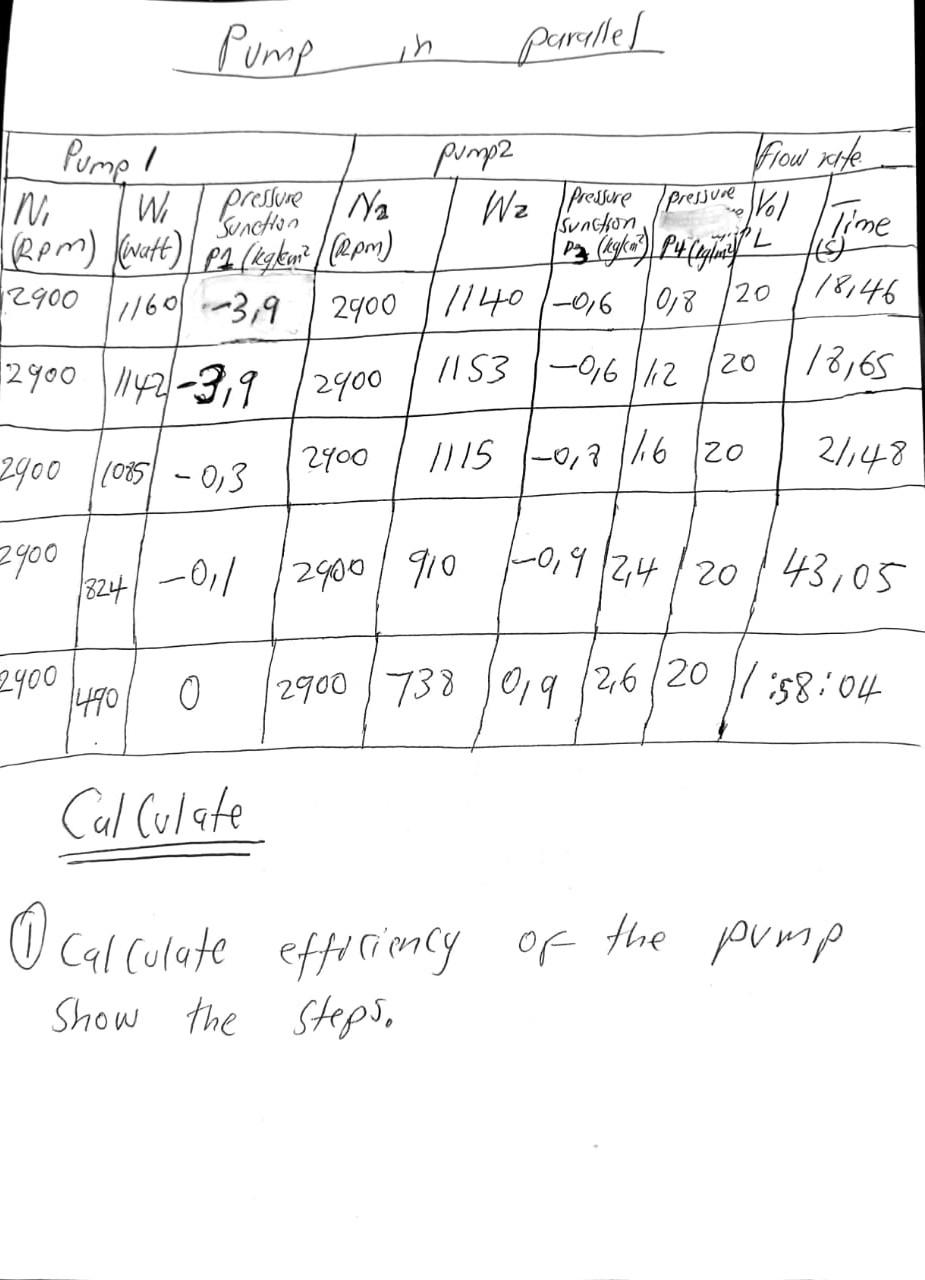 Pump in parallel
Pump 1 pump2 flow rate
N1 W1 Pressure N2 W2 Pressure pressure Vol Time
(Rpm) (watt) sunction (Rpm) sunction L (s)
P1 (kg/cm² P3 (kg/cm²) P4 (kg/cm²)
2900 1160 -3,9 2900 1140 -0,6 0,8 20 18,46
2900 1142 -3,9 2900 1153 -0,6 1,2 20 18,65
2900 1085 -0,3 2900 1115 1,6 20 21,48
2900 824 -0,1 2900 910 -0,9 2,4 20 43,05
2900 490 0 2900 738 0,9 2,6 20 1:58:04
Calculate
① Calculate efficiency of the pump
show the steps.